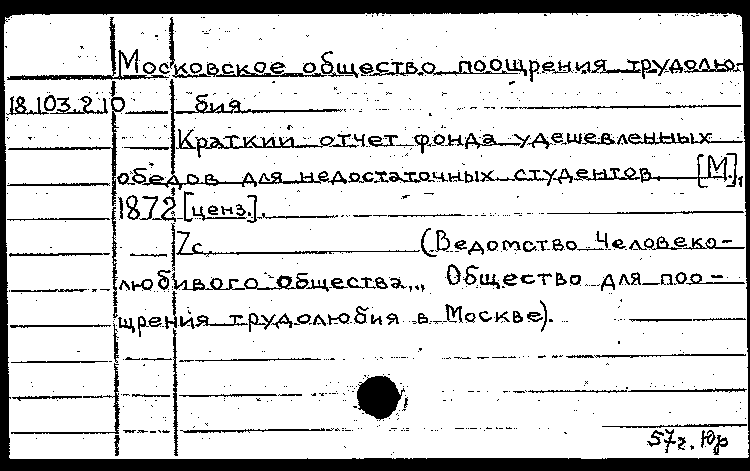 Московское общество поощрения трудолю-
18.103.2.10 бия
Краткий отчет фонда удешевленных
обедов для недостаточных студентов. [М.],
1872 [ценз.].
7с. (Ведомство Человеко-
любивого общества,, Общество для поо-
щрения трудолюбия в Москве).
57г. Юр